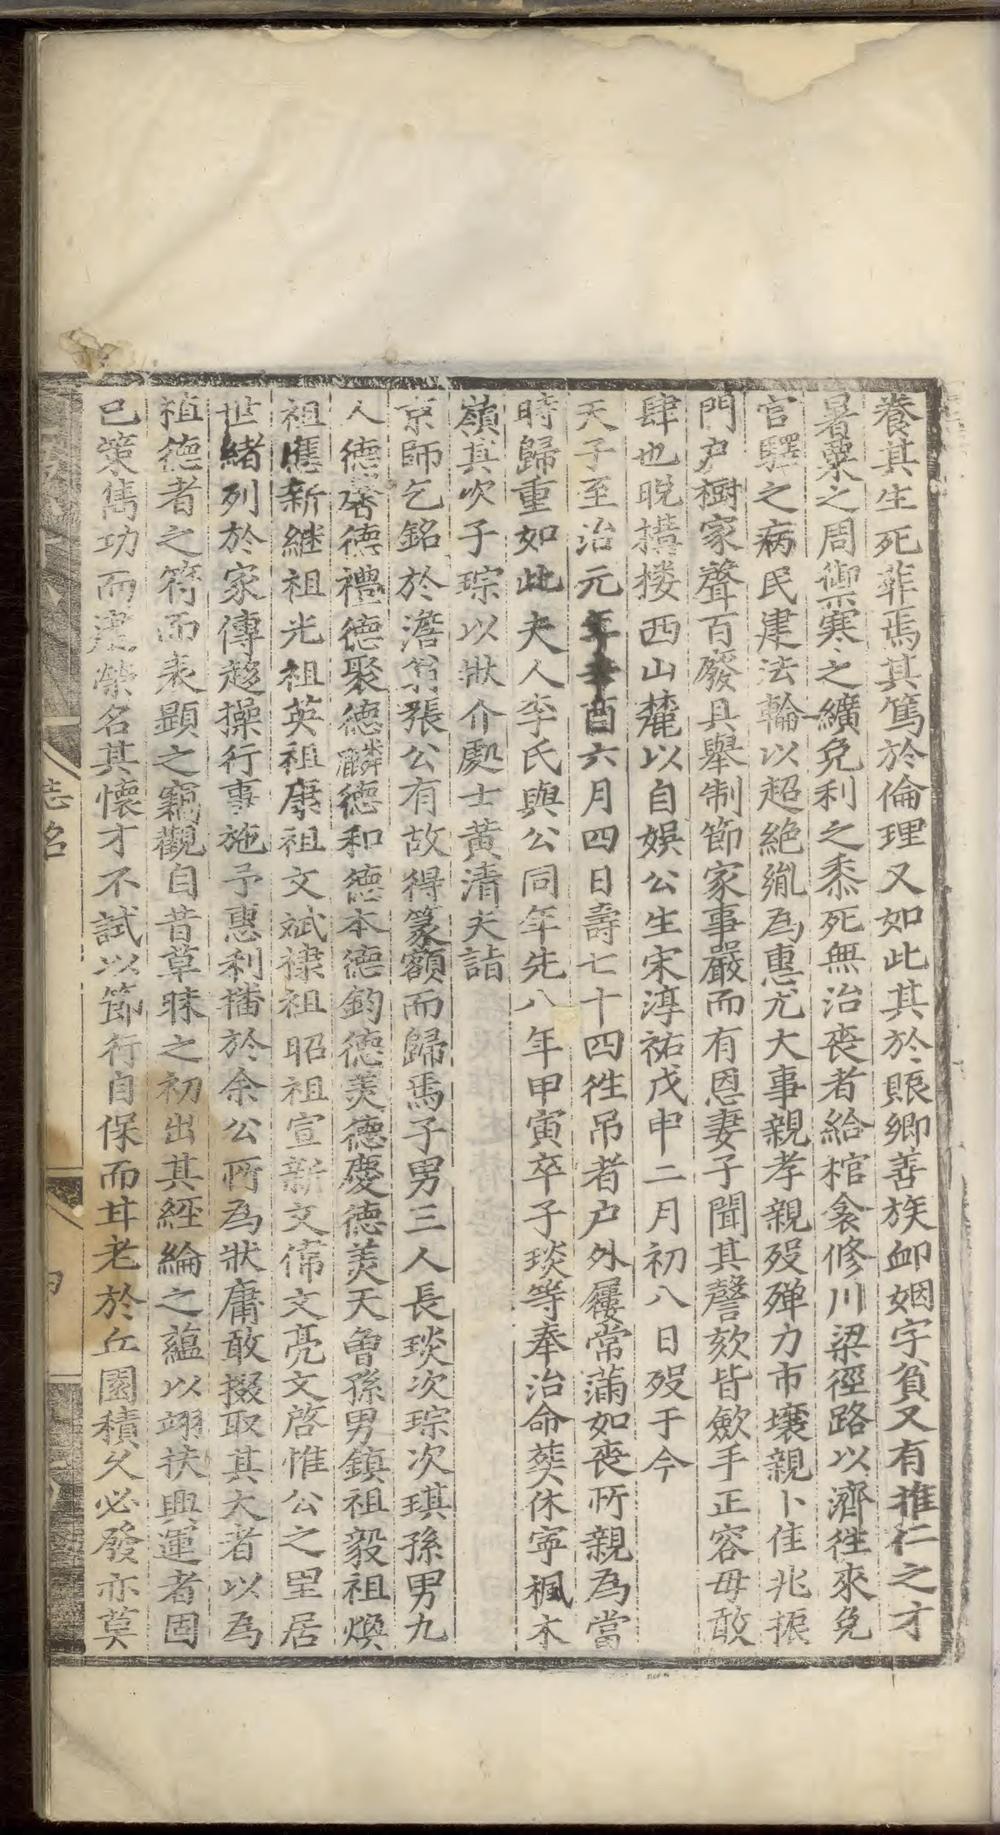 養其生死葬焉其篤於倫理又如此其於賑卹善族卹姻字貧又有推仁之才
暑粟之周禦寒之纊免利之黍死無治喪者給棺衾修川梁徑路以濟徃來免
官驛之病民建法輪以超絶㣧為惠尤大事親孝親殁殫力市壌親卜佳兆振
門户樹家聲百廢具舉制節家事嚴而有恩妻子聞其謦欬皆歛手正容毋敢
肆也晚搆楼西山麓以自娯公生宋淳祐戊申二月初八日殁于今
天子至治元年辛酉六月四日壽七十四徃吊者户外屨常滿如喪所親為當
時歸重如此夫人李氏與公同年先八年甲寅卒子琰等奉治命葬休寜楓木
嶺其次子琮以狀介處士黄清夫詣
京師乞銘於澹翁張公有故得篆額而歸焉子男三人長琰次琮次琪孫男九
人德馨德禮德聚德麟德和德本德鈞德羙德慶德羙天曾孫男鎮祖毅祖煥
祖應新継祖光祖英祖康祖文斌禄祖昭祖宣新文儒文亮文啓惟公之里居
世緒列於家傳趍操行事施予惠利播於余公所為狀庸敢掇取其大者以為
植德者之符而表顕之竊觀自昔草昧之初出其經綸之藴以翊扶興運者固
已策雋功而建榮名其懐才不試以節行自保而甘老於丘園積久必發亦莫
志銘
四